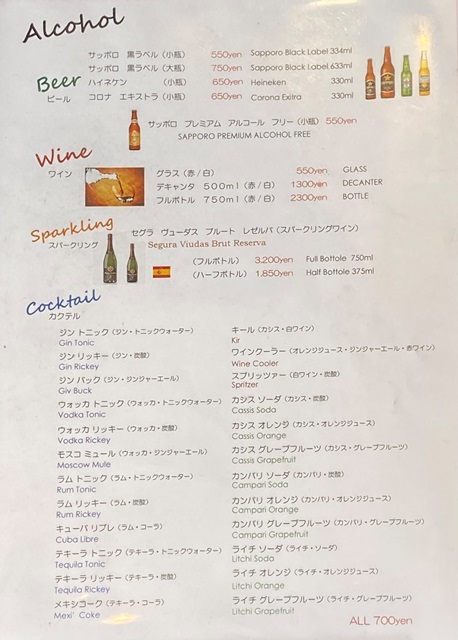 Alcohol
Beer
ビール
サッポロ 黒ラベル（小瓶） 550yen Sapporo Black Label 334ml
サッポロ 黒ラベル（大瓶） 750yen Sapporo Black Label 633ml
ハイネケン （小瓶） 650yen Heineken 330ml
コロナ エキストラ（小瓶） 650yen Corona Exitra 330ml
サッポロ プレミアム アルコール フリー（小瓶） 550yen
SAPPORO PREMIUM ALCOHOL FREE
Wine
ワイン
グラス（赤／白） 550yen GLASS
デキャンタ 500ml（赤／白） 1300yen DECANTER
フルボトル 750ml（赤／白） 2300yen BOTTLE
Sparkling
スパークリング
セグラ ヴューダス ブルート レゼルバ（スパークリングワイン）
Segura Viudas Brut Reserva
（フルボトル） 3.200yen Full Bottole 750ml
（ハーフボトル） 1.850yen Half Bottole 375ml
Cocktail
カクテル
ジン トニック（ジン・トニックウォーター）
Gin Tonic
ジン リッキー（ジン・炭酸）
Gin Rickey
ジン バック（ジン・ジンジャーエール）
Giv Buck
ウォッカ トニック（ウォッカ・トニックウォーター）
Vodka Tonic
ウォッカ リッキー（ウォッカ・炭酸）
Vodka Rickey
モスコ ミュール（ウォッカ・ジンジャーエール）
Moscow Mule
ラム トニック（ラム・トニックウォーター）
Rum Tonic
ラム リッキー（ラム・炭酸）
Rum Rickey
キューバ リブレ（ラム・コーラ）
Cuba Libre
テキーラ トニック（テキーラ・トニックウォーター）
Tequila Tonic
テキーラ リッキー（テキーラ・炭酸）
Tequila Rickey
メキシコーク（テキーラ・コーラ）
Mexi' Coke
キール（カシス・白ワイン）
Kir
ワインクーラー（オレンジジュース・ジンジャーエール・赤ワイン）
Wine Cooler
スプリッツァー（白ワイン・炭酸）
Spritzer
カシス ソーダ（カシス・炭酸）
Cassis Soda
カシス オレンジ（カシス・オレンジジュース）
Cassis Orange
カシス グレープフルーツ（カシス・グレープフルーツ）
Cassis Grapefruit
カンパリ ソーダ（カンパリ・炭酸）
Campari Soda
カンパリ オレンジ（カンパリ・オレンジジュース）
Campari Orange
カンパリ グレープフルーツ（カンパリ・グレープフルーツ）
Campari Grapefruit
ライチ ソーダ（ライチ・ソーダ）
Litchi Soda
ライチ オレンジ（ライチ・オレンジジュース）
Litchi Orange
ライチ グレープフルーツ（ライチ・グレープフルーツ）
Litchi Grapefruit
ALL 700yen